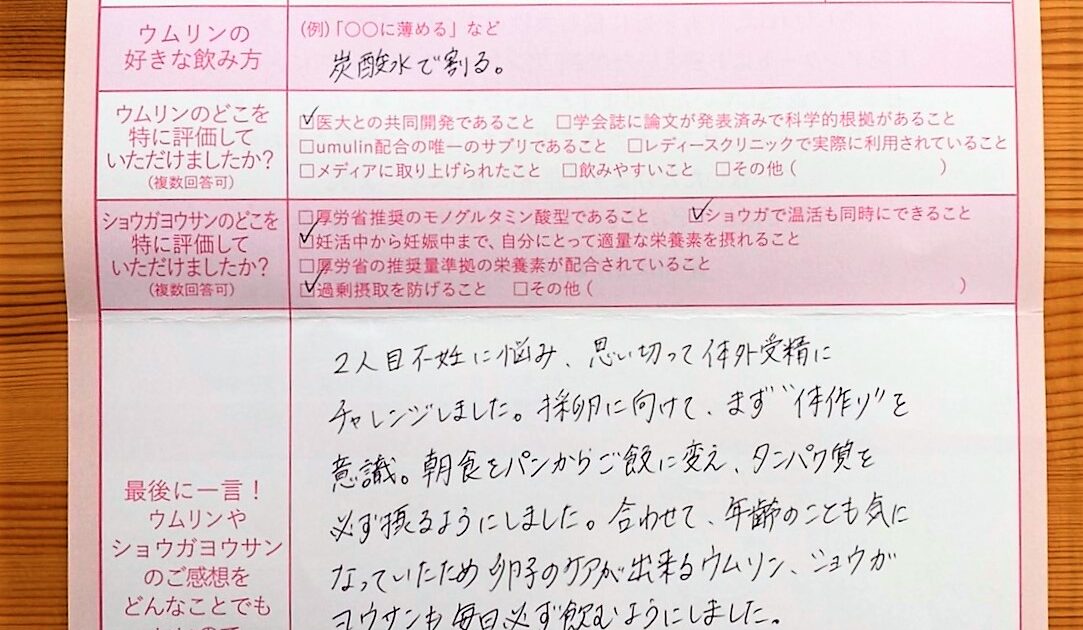 ウムリンの
好きな飲み方
(例)「〇〇に薄める」など
炭酸水で割る。
ウムリンのどこを
特に評価して
いただけましたか?
(複数回答可)
☑医大との共同開発であること □学会誌に論文が発表済みで科学的根拠があること
□umulin配合の唯一のサプリであること □レディースクリニックで実際に利用されていること
□メディアに取り上げられたこと □飲みやすいこと □その他( )
ショウガヨウサンのどこを
特に評価して
いただけましたか?
(複数回答可)
□厚労省推奨のモノグルタミン酸型であること ☑ショウガで温活も同時にできること
☑妊活中から妊娠中まで、自分にとって適量な栄養素を摂れること
□厚労省の推奨量準拠の栄養素が配合されていること
☑過剰摂取を防げること □その他( )
最後に一言!
ウムリンや
ショウガヨウサン
のご感想を
どんなことでも
2人目不妊に悩み、思い切って体外受精に
チャレンジしました。採卵に向けて、まず"体作り"を
意識。朝食をパンからご飯に変え、タンパク質を
必ず摂るようにしました。合わせて、年齢のことも気に
なっていたため卵子のケアが出来るウムリン、ショウガ
ヨウサンも毎日必ず飲むようにしました。